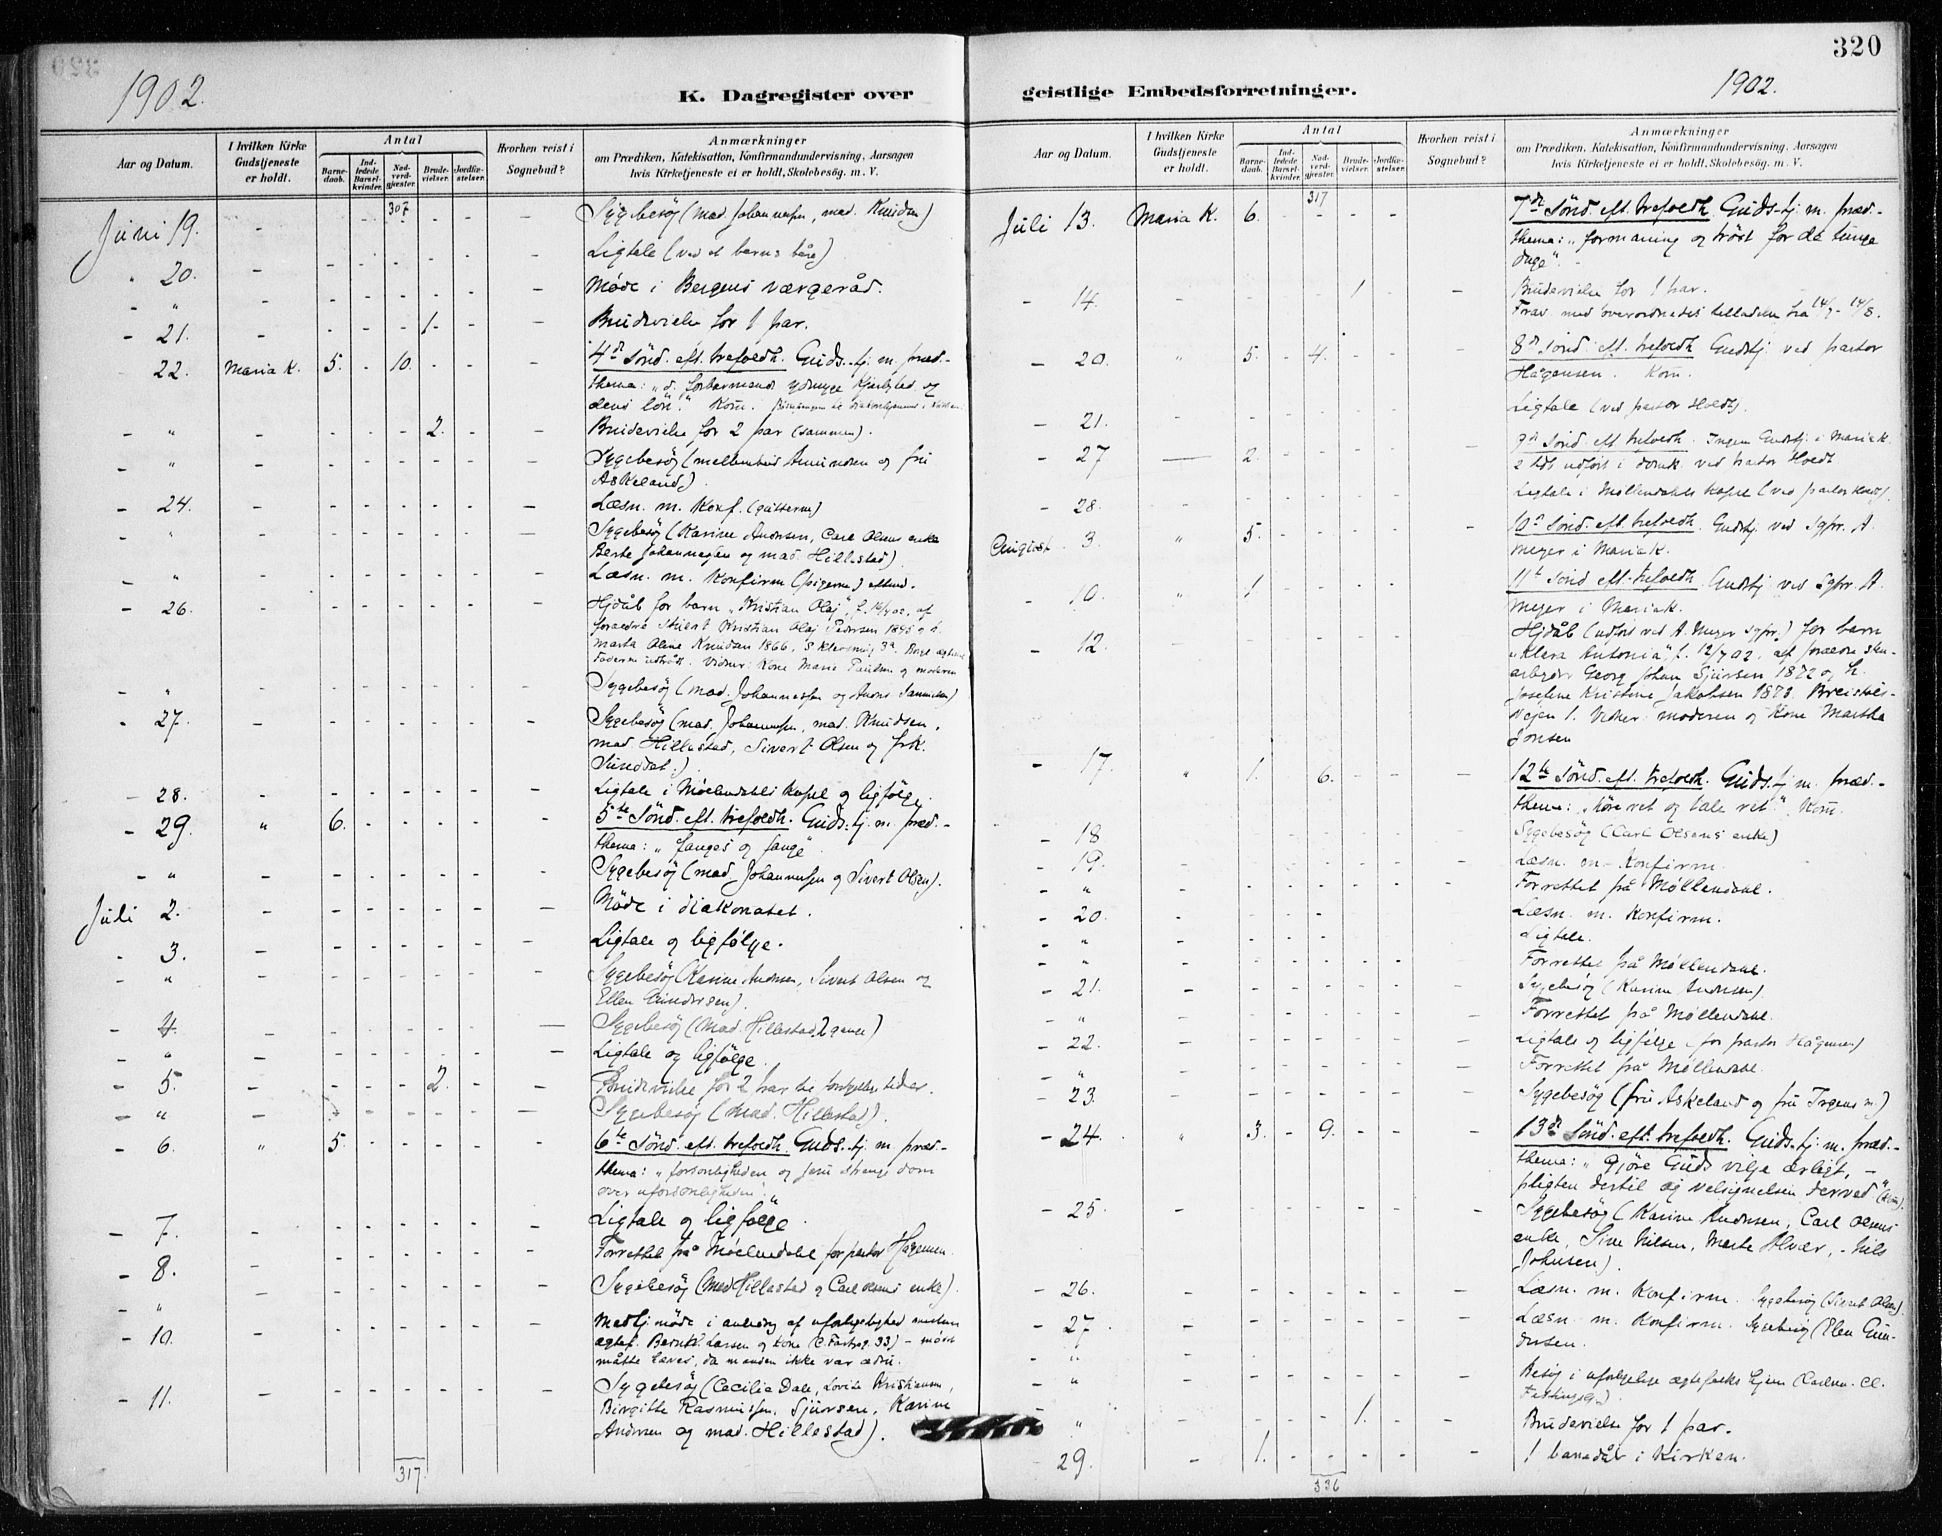 320
1902.
K. Dagregister over
Aar og Datum.
I hvilken Kirke Gudstjeneste er holdt.
Antal
Barnedaab.
Indledede Barselkvinder.
Nadverdgjester.
Brudevielser.
Jordfæstelser.
Hvorhen reist i Sognebud?
Anmærkninger
om Prædiken, Katekisation, Konfirmandundervisning, Aarsagen
hvis Kirketjeneste ei er holdt, Skolebesøg. m. V.
307
Juni 19. - - - - - - - Sygebesøg (mad. Johannessen, mad. Knudsen)
Ligtale (ved et barns båre)
" 20. - - - - - - - Møde i Bergens værgeråd.
- 21. - - - - 1. - - Brudevielse for 1 par.
- 22. Maria K. 5. - 10. - - - 4d Sønd. eft. trefoldh. Guds.tj. m. præd.-
thema: "d. forbarmende ydmyge Kjærlighed og
dens løn." Kom.
- " - - - - 2. - - Brudevielse for 2 par (sammen).
- " Sygebesøg (mellemberd Amundsen og fru
Askeland)
- 24. Læsn. m. Konf. (gutterne)
- " Sygebesøg (Karine Andersen, Carl Olsens enke
Berte Johannesen og mad. Hillestad)
- " Læsn. m. Konfirm (pigerne) eftmd.
- 26. Hjdåb for barn "Kristian Olaf",
forældre Kristian Olaf Pedersen 1895 og h.
Marta Oline Knudsen 1866,
Vidner: Kone Marie Paulsen og moderen
- " Sygebesøg (mad. Johannessen og Samuelsen)
- 27. Sygebesøg (mad. Johannessen, mad. Knudsen,
mad. Hillestad, Sivert Olsen og frk.
Sundal.)
- 28. Ligtale i Møllendals kapel og ligfølge.
- 29. " 6. - - - - - 5te Sønd. eft. trefoldh. Guds.tj. m. præd.-
thema: "fanges og fange"
- " Sygebesøg (mad. Johannessen og Sivert Olsen).
Juli 2. Møde i diakonatet.
- 3. Ligtale og ligfølge.
- " Sygebesøg (Karine Andersen, Sivert Olsen og
Ellen Gundersen).
- 4. Sygebesøg (Mad. Hillestad 2 gange)
- " Ligtale og ligfølge.
- 5. - - - - 2. - - Brudevielse for 2 par til forskjellige tider.
- " Sygebesøg (Mad. Hillestad).
- 6. " 5. - - - - - 6te Sønd. eft. trefoldh. Guds.tj. m. præd.-
thema: "forsonligheden og Jesu strenge dom
over uforsonligheden".
- 7. Ligtale og ligfølge.
- 8. Forrettet på Møllendal for pastor Hagensen.
- " Sygebesøg (Mad. Hillestad og Carl Olsens enke).
- 10. Medlj. møde i anledng af uforligelighed mellem
ægtef. Larsen og kone (C. Fastings g. 33) – mødet
måtte hæves, da manden ikke var ædru.
- 11. Sygebesøg (Cecilia Dale, Lovise Kristiansen,
Birgitte Rasmussen, Sjursen, Karine
Andersen og mad. Hillestad).
317.
geistlige Embedsforretninger.
1902.
Aar og Datum.
I hvilken Kirke Gudstjeneste er holdt.
Antal
Barnedaab.
Indledede Barselkvinder.
Nadverdgjester.
Brudevielser.
Jordfæstelser.
Hvorhen reist i Sognebud?
Anmærkninger
om Prædiken, Katekisation, Konfirmandundervisning, Aarsagen
hvis Kirketjeneste ei er holdt, Skolebesøg. m. V.
317
Juli 13. Maria K. 6. - - - - - 7de Sønd. eft. trefoldh. Guds-tj. m. præd.-
thema: "formaning og trøst for de tunge
dage".
- 14. - - - - 1 - - Brudevielse for 1 par.
Frav. med overordnedes tilladelse fra 14/7 - 14/8.
- 20. " 5. - 4. - - - 8de Sønd. eft. trefoldh. Gudstj. ved pastor
Hagensen. Kom.
- 21. Ligtale (ved pastor Holdt).
- 27 — 2. - - - - - 9de Sønd. eft. trefoldh. Ingen Gudstj. i Mariak.
2 udført i domk. ved pastor Holdt
- 28. Ligtale i Møllendals kapel (ved pastor Holdt)
August 3. " 5. - - - - - 10de Sønd. eft. trefoldh. Gudstj. ved Sgpr. A.
Meyer i Mariak.
- 10. " 1. - - - - - 11te Sønd. eft. trefoldh. Gudstj. ved Sgpr. A.
Meyer i Mariak.
- 12. Hjdåb (udført ved A. Meyer sgpr.) for barn
"Klara Antonia" f. 12/7 02, af forældre
arbeider Georg Johan Sjursen 1872 og h.
Josefine Kristine Jakobsen 1873.
Vejen 1. Vidner: moderen og Kone Martha
Jonsen
- 17. " 1. - 6. - - - 12te Sønd. eft. trefoldh. Guds.tj. m. præd.-
thema: "høre ret og tale ret." Kom.
- 18 Sygebesøg (Carl Olsens enke)
- 19. Læsn. m. Konfirm.
- " Forrettet på Møllendal.
- 20. Læsn. m. Konfirm.
- " Ligtale.
- " Forrettet på Møllendal.
- 21. Sygebesøg (Karine Andersen)
- " Forrettet på Møllendal.
- 22. Ligtale og ligfølge (for pastor Hagensen)
- " Forrettet på Møllendal.
- 23. Sygebesøg (fru Askeland og fru Irgens m.)
- 24. " 3. - 9. - - - 13de Sønd. eft. trefoldh. Guds.tj. m. præd.-
thema: "gjøre Guds vilje ærligt, –
pligten dertil og velsignelsen derved" (Kom).
- 25 Sygebesøg (Karine Andersen, Carl Olsens
enke, Sine Nilsen, Marte Alver, Nils
Johnsen).
- 26. Læsn. m. Konfirm. Sygebesøg (Sivert Olsen)
- 27. Læsn. m. Konfirm. Sygebesøg (Elen Gundersen.
- " Besøg i uforligelige ægtefolks hjem
- " - - - - 1. - - Brudevielse for 1 par.
29. 1. - - - - - 1 barnedåb i Kirken.
336